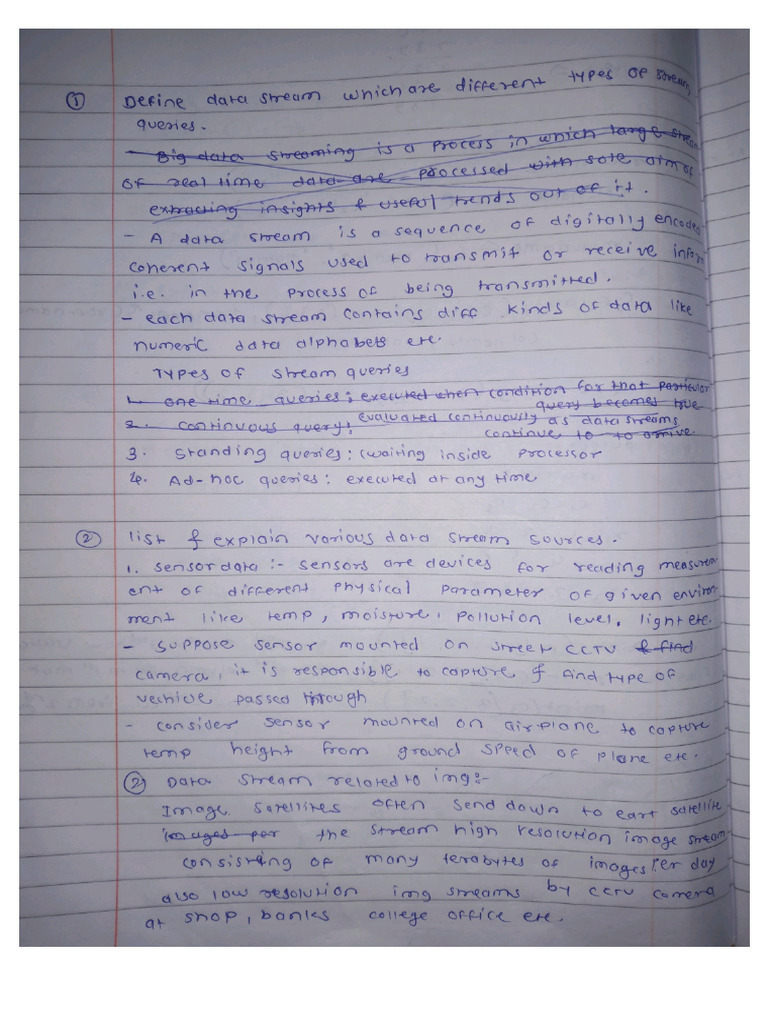 ① Define data stream which are different types of stream
queries.
- Big data streaming is a process in which large stream
of real time data are processed with sole aim of
extracting insights & useful trends out of it.
- A data stream is a sequence of digitally encoded
coherent signals used to transmit or receive inform
i.e. in the process of being transmitted.
- each data stream contains diff kinds of data like
numeric data alphabets etc.
Types of stream queries
1. one time queries; executed when condition for that particular
query becomes true
2. continuous query; evaluated continuously as data streams
continue to to arrive.
3. standing queries: (waiting inside processor
4. Ad-hoc queries: executed at any time
② list & explain various data stream sources.
1. sensor data :- sensors are devices for reading measurem
ent of different physical parameter of given environ
ment like temp, moisture, pollution level, light etc.
- suppose sensor mounted on street CCTV & find
camera, it is responsible to capture & find type of
vechivle passed through
- consider sensor mounted on airplane to capture
temp height from ground speed of plane etc.
② Data stream related to img:-
Image. satellites often send down to eart satellite
images per the stream high resolution image stream
consisting of many terabytes of images per day
also low resolution img streams by CCTV camera
at shop, banks college office etc.